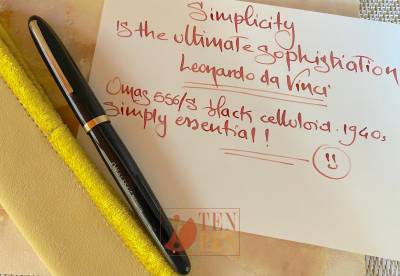 Simplicity
is the ultimate sophistiation
Leonardo da Vinci
Omas 556/S black celluloid 1940,
Simply essential!
TEN
PEN